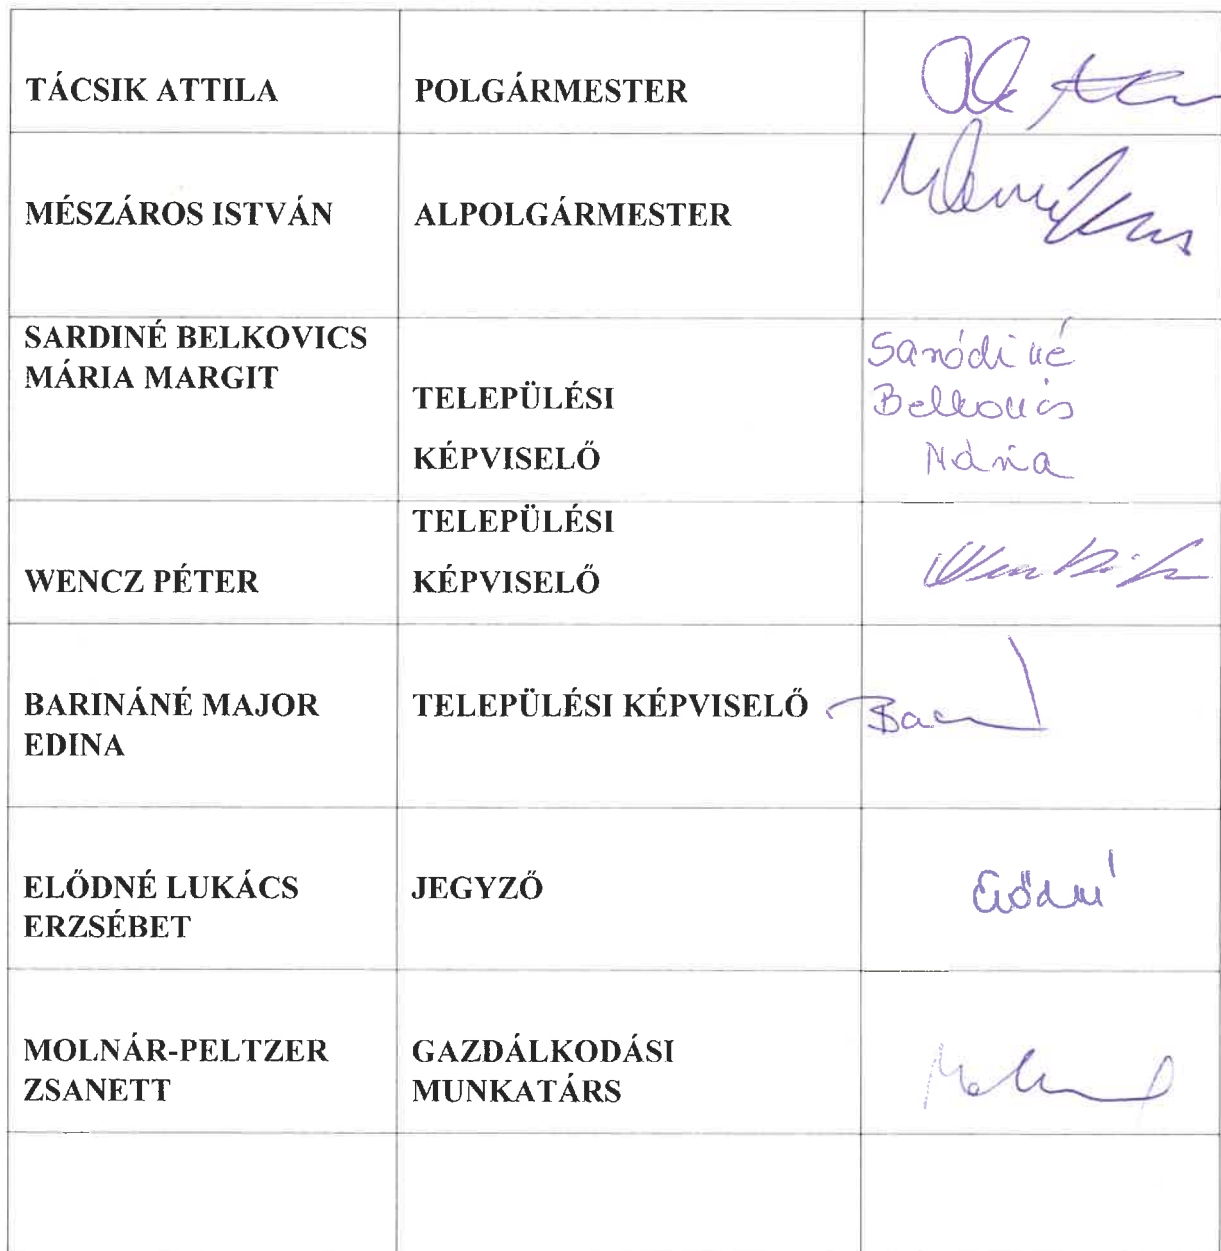 TÁCSIK ATTILA
POLGÁRMESTER
MÉSZÁROS ISTVÁN
ALPOLGÁRMESTER
SARDINÉ BELKOVICS
MÁRIA MARGIT
TELEPÜLÉSI
KÉPVISELŐ
Sanódiné
Belkovics
Mária
WENCZ PÉTER
TELEPÜLÉSI
KÉPVISELŐ
BARINÁNÉ MAJOR
EDINA
TELEPÜLÉSI KÉPVISELŐ
ELŐDNÉ LUKÁCS
ERZSÉBET
JEGYZŐ
Elődné
MOLNÁR-PELTZER
ZSANETT
GAZDÁLKODÁSI
MUNKATÁRS